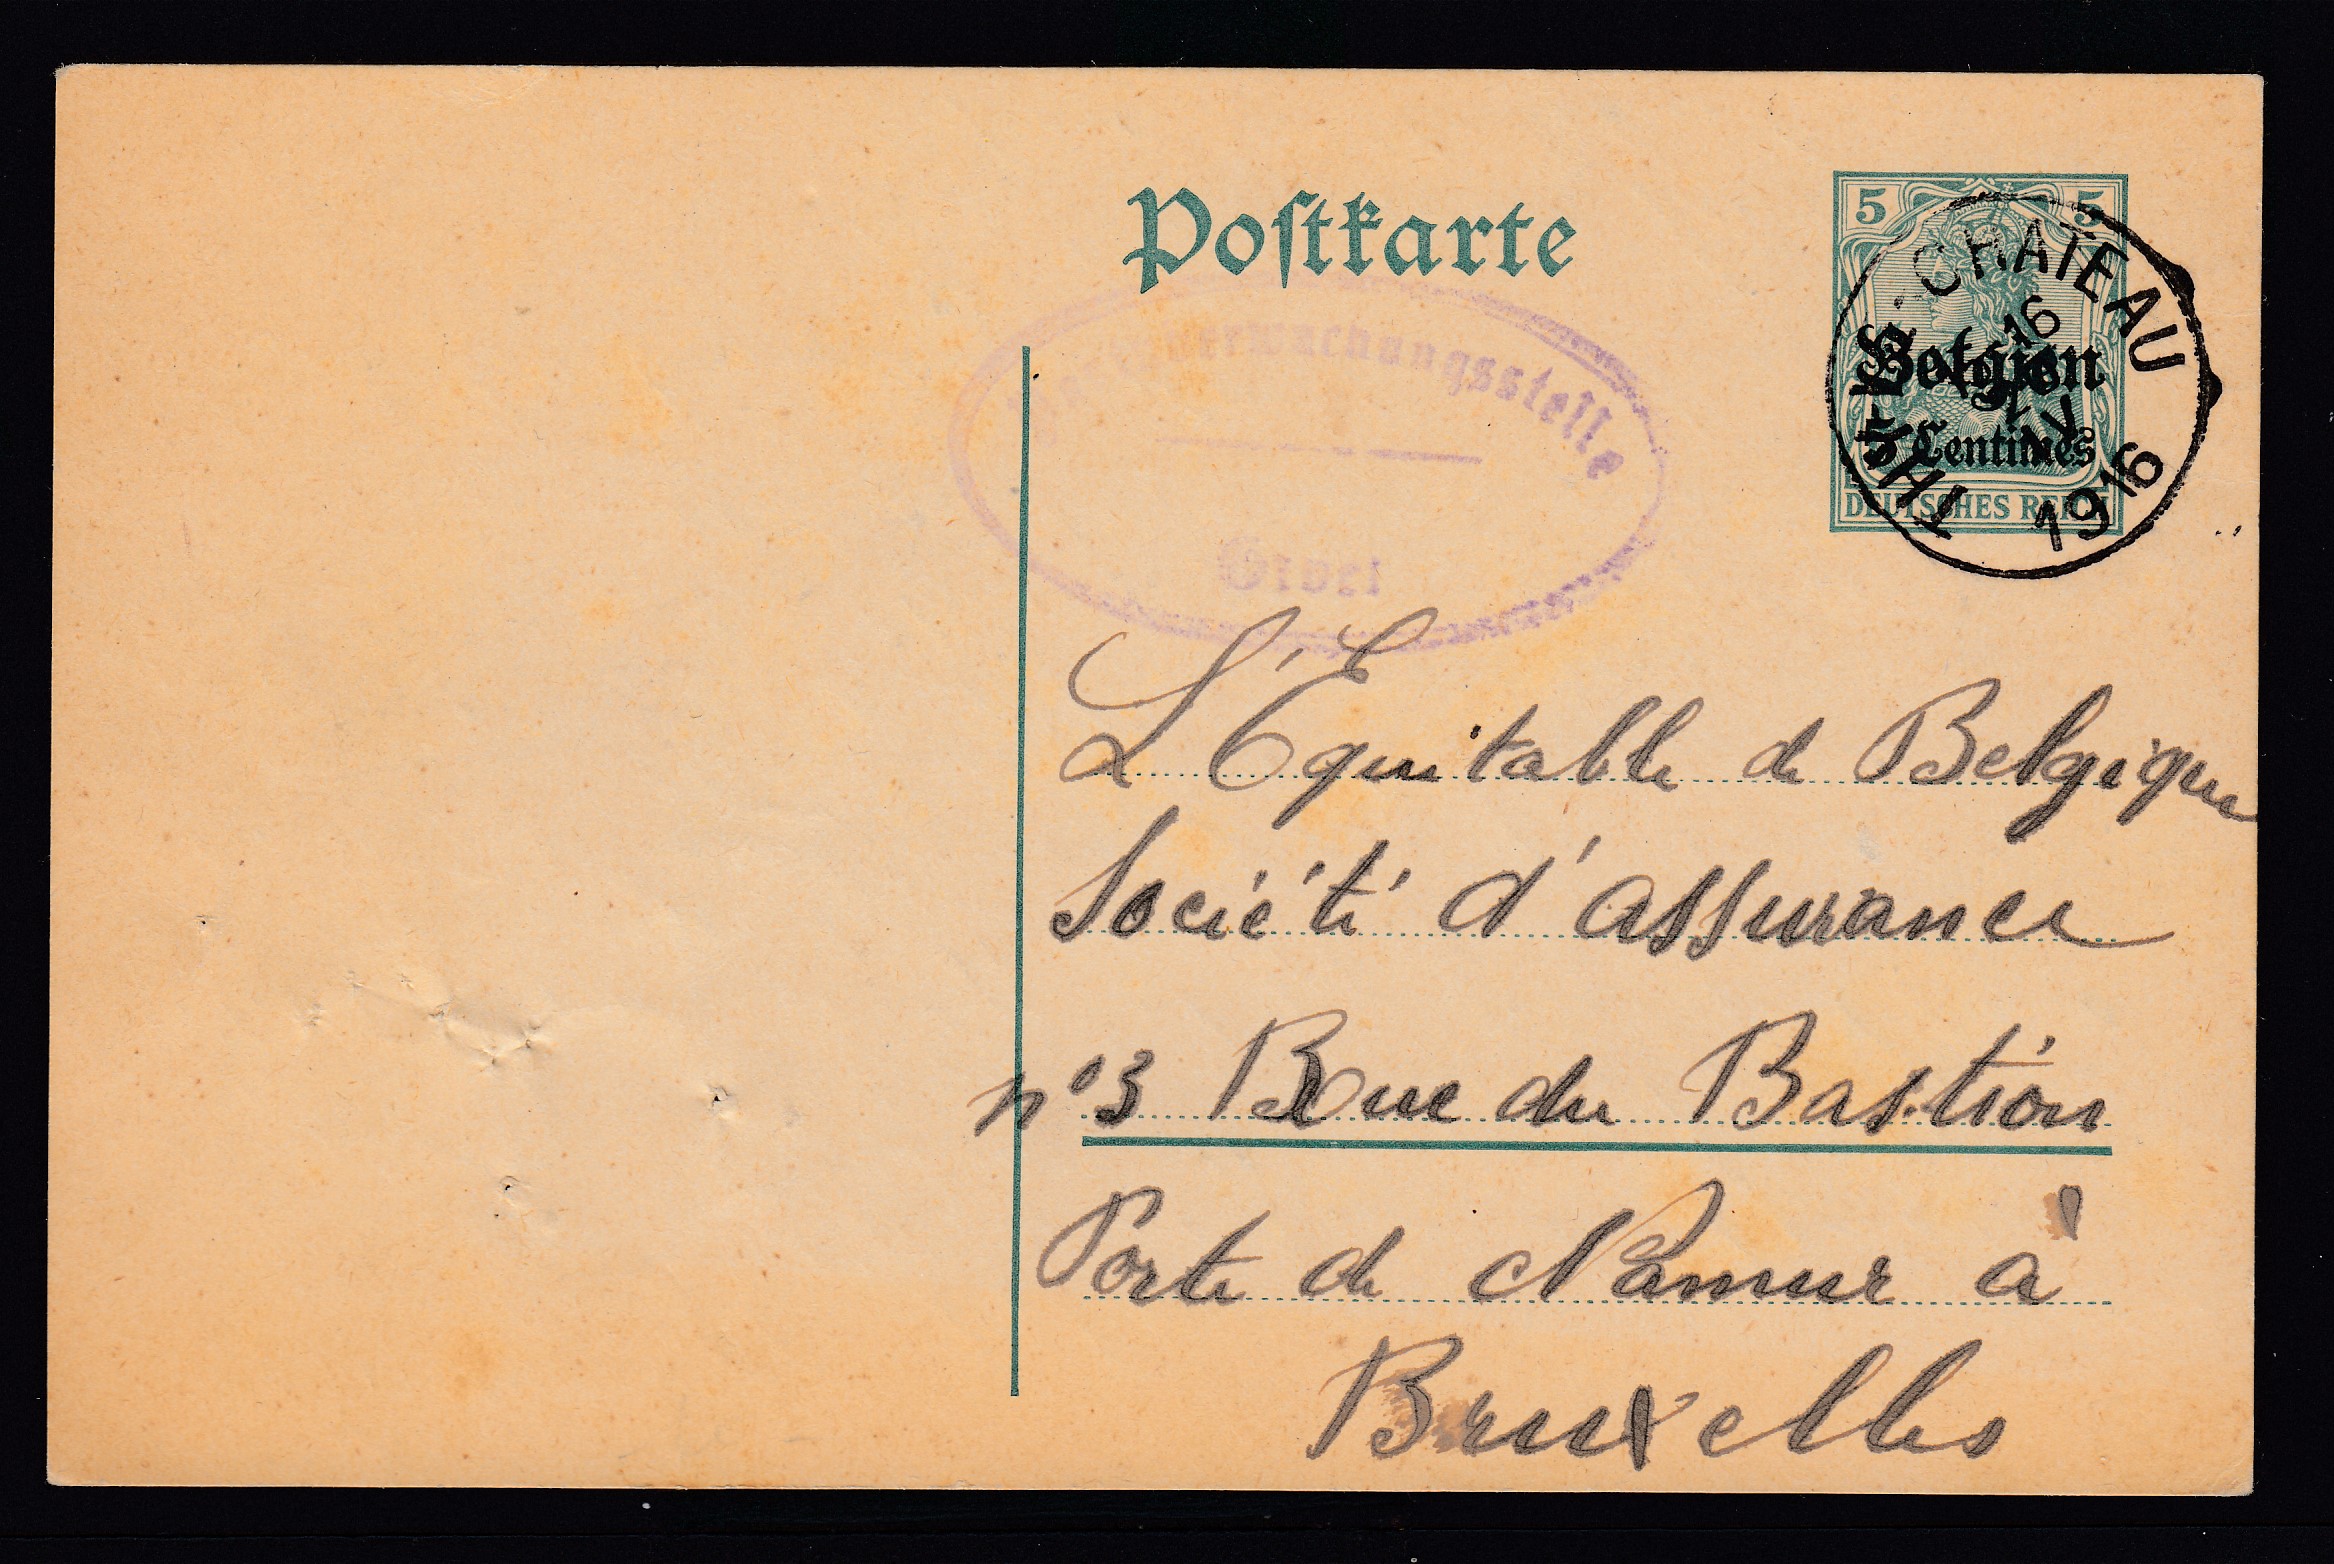 Postkarte
5 5
Belgien
5 Centimes
DEUTSCHES REICH
THY-LE-CHATEAU
16
1916
L'Équitable de Belgique
Société d'assurance
n° 3 Rue du Bastion
Porte de Namur à
Bruxelles